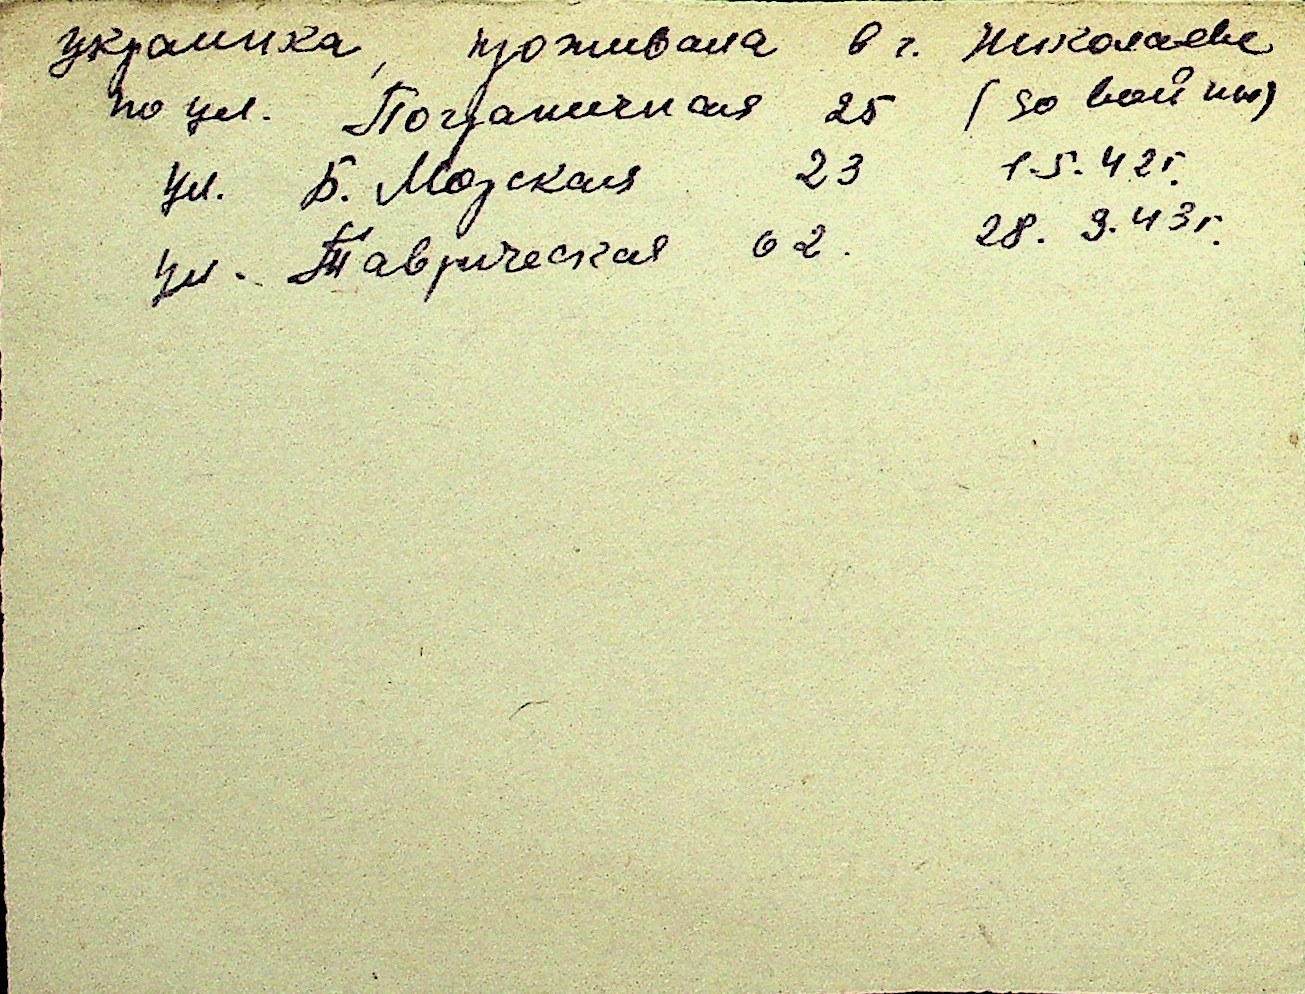 украинка, проживала в г. Николаеве
по ул. Пограничная 25 (до войны)
ул. Б. Морская 23 1.5.42г.
ул. Таврическая 62. 28. 9.43г.